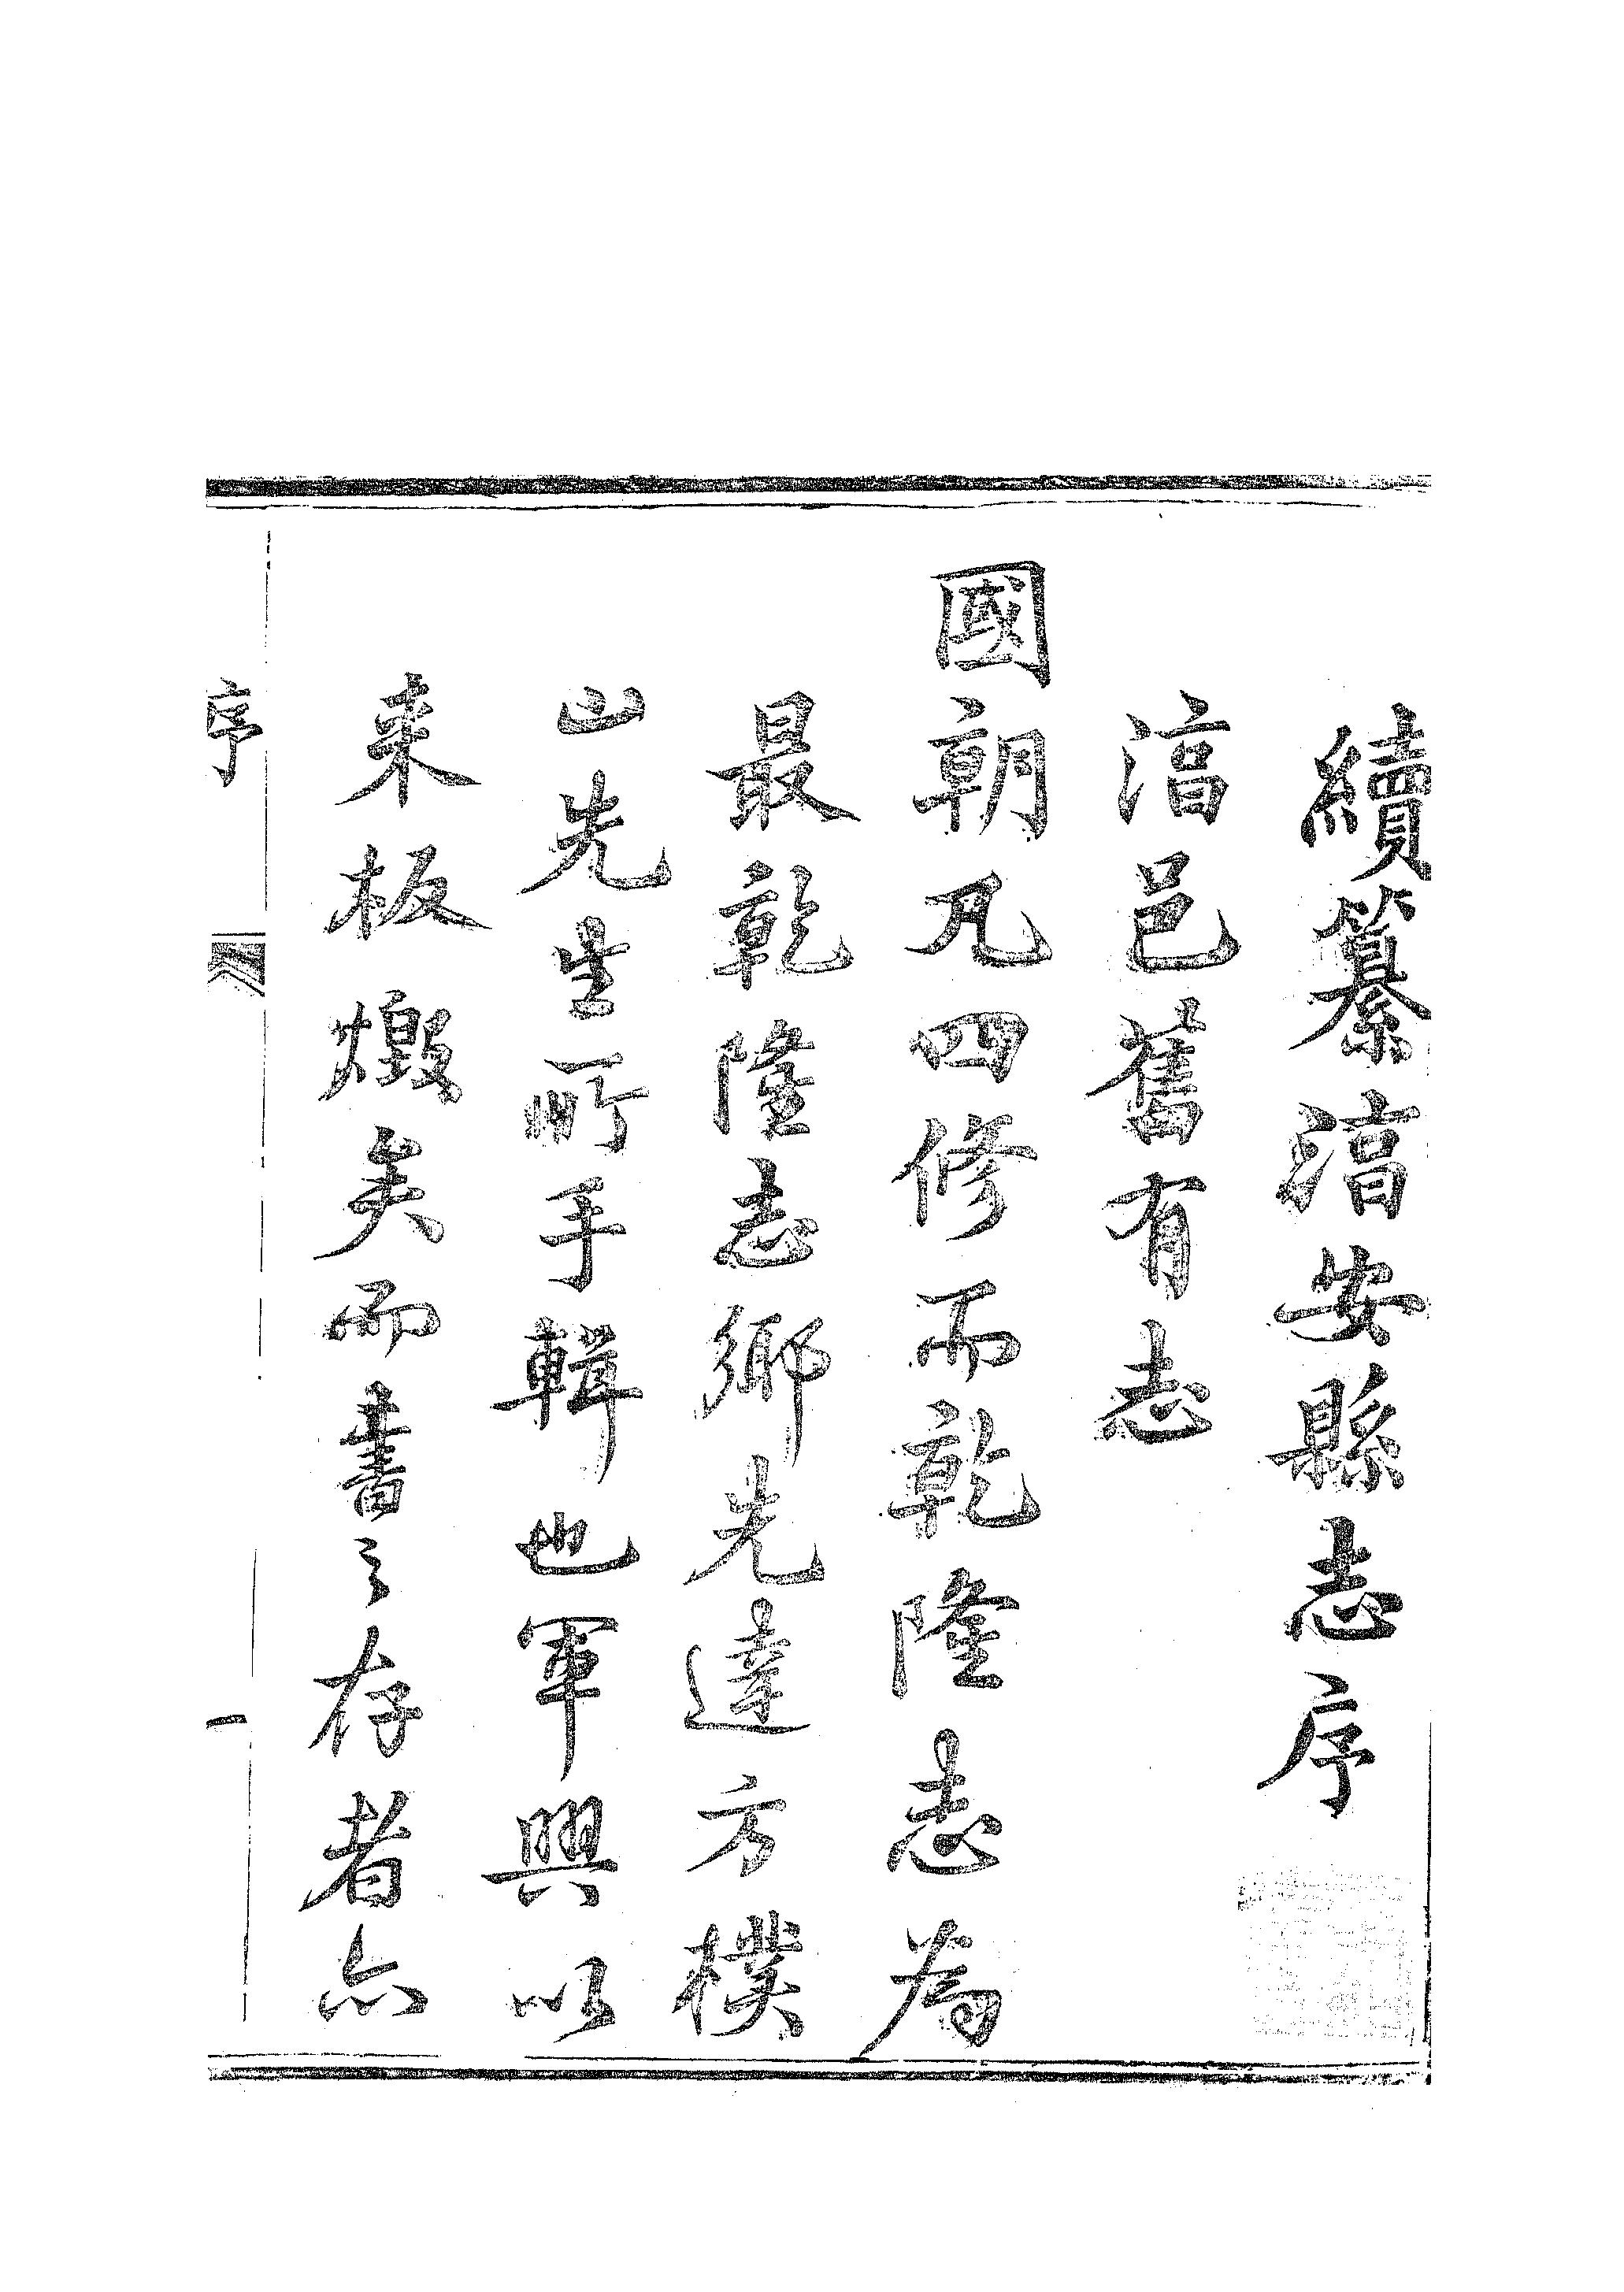 續纂淯安縣志序
淯邑舊有志
國朝凡四修而乾隆志為
最乾隆志鄉先達方樸
山先生所手輯也軍興以
来板燬矣而書之存者亦
序
一